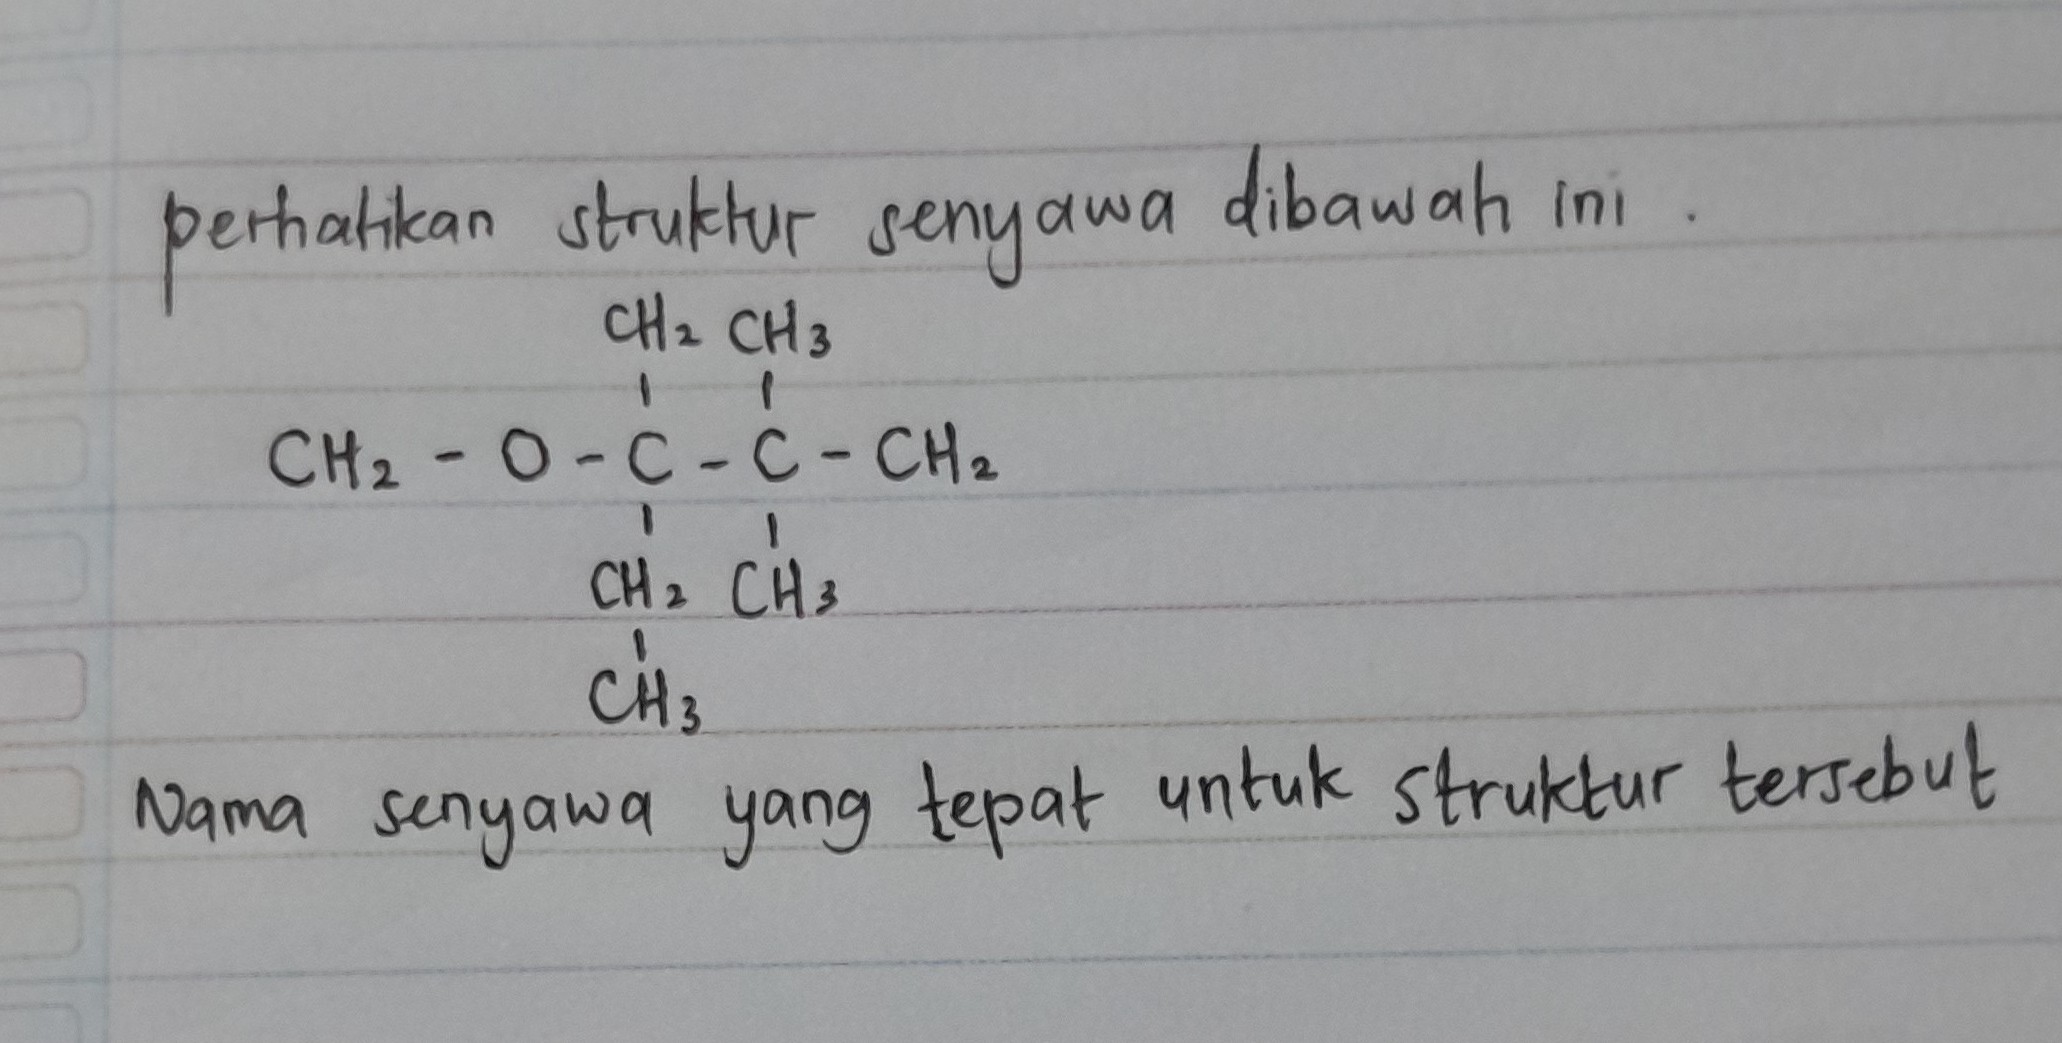 perhatikan struktur senyawa dibawah ini .
CH2 CH3
CH2 - O - C - C - CH2
CH2 CH3
CH3
Nama senyawa yang tepat untuk struktur tersebut